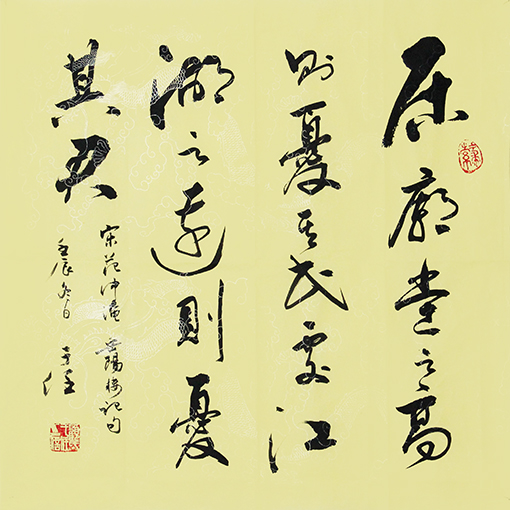 居廟堂之高
則憂其民處江
湖之遠則憂
其君
宋范仲淹 岳陽樓記句
壬辰冬日